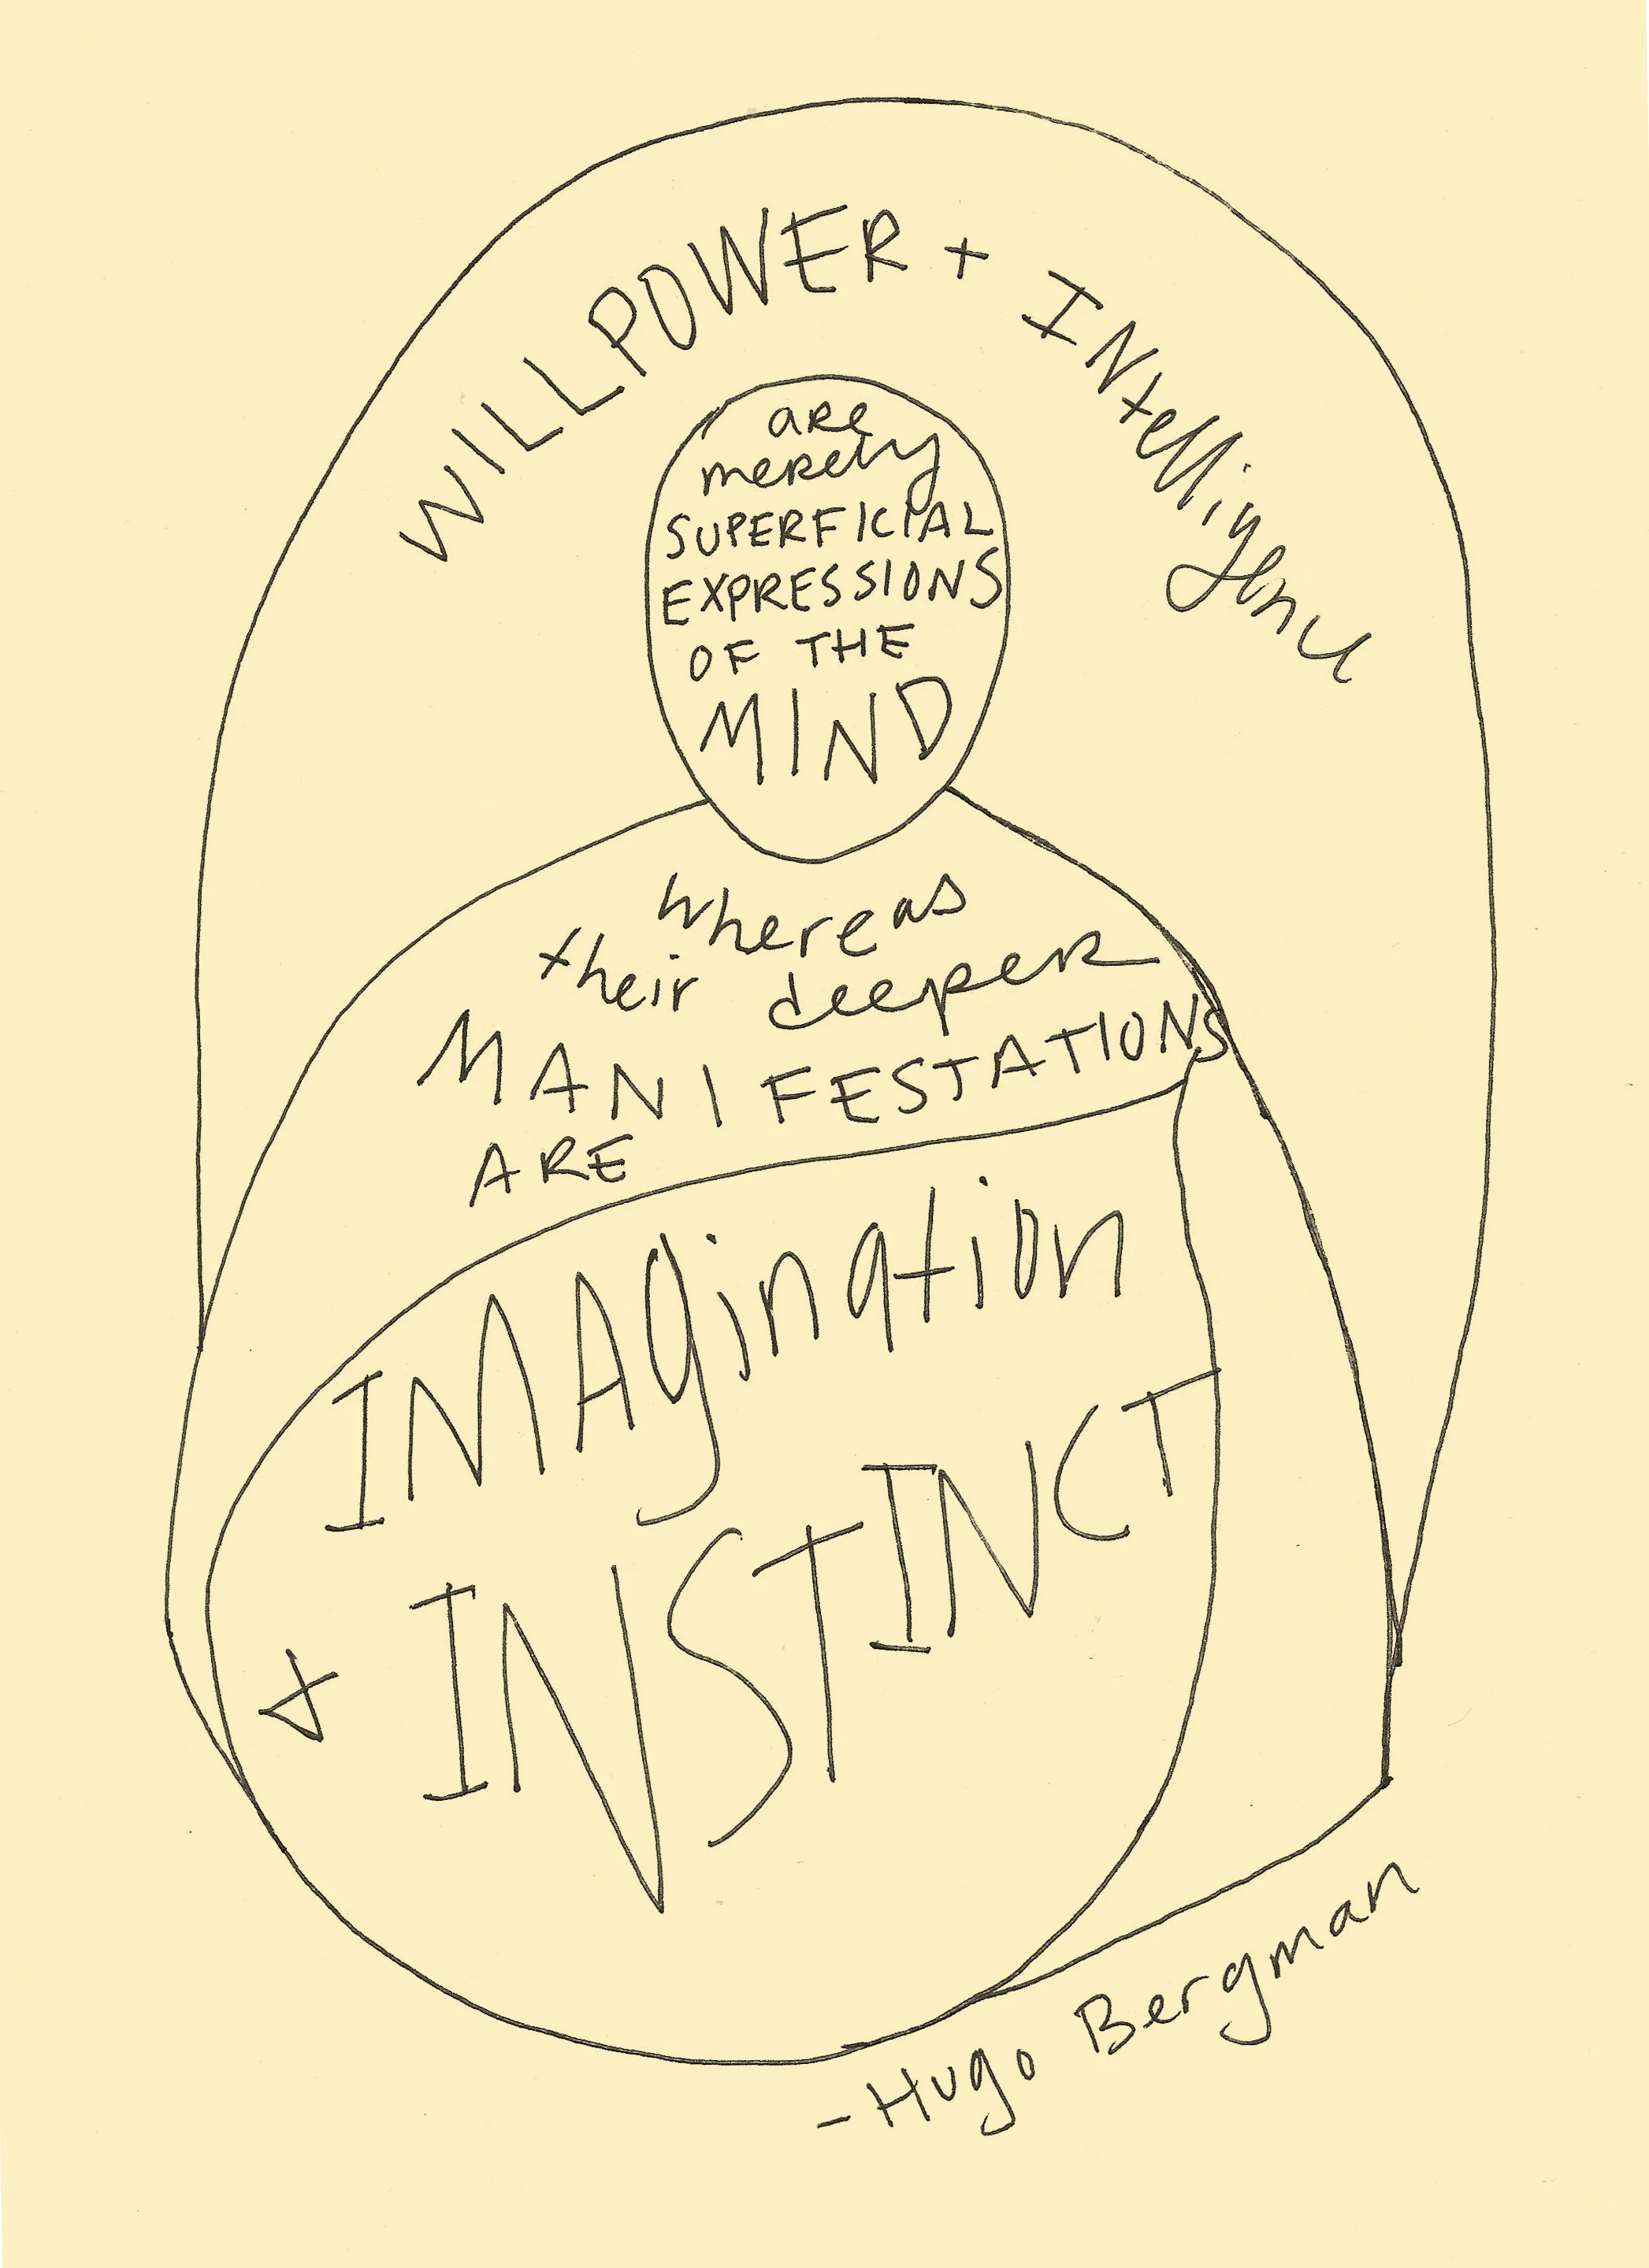 WILLPOWER + INtelligence
are
merely
SUPERFICIAL
EXPRESSIONS
OF THE
MIND
whereas
their deeper
MANIFESTATIONS
ARE
IMAgination
+ INSTINCT
- Hugo Bergman